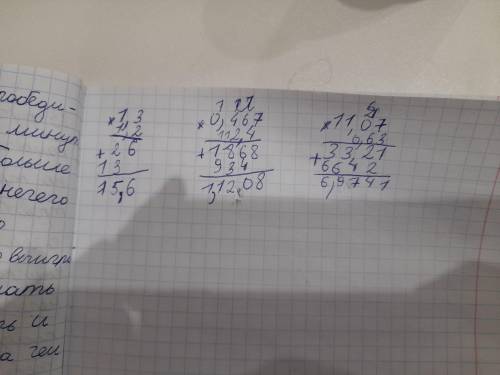 победи-
минут
больше
нечего
выигр
ать
ть и
а чем
× 1,3
1,2
+ 26
13
15,6
1 1 1
× 0,467
2,4
+ 1868
934
1,12,08
4
× 11,07
0,63
+ 3321
6642
6,9741